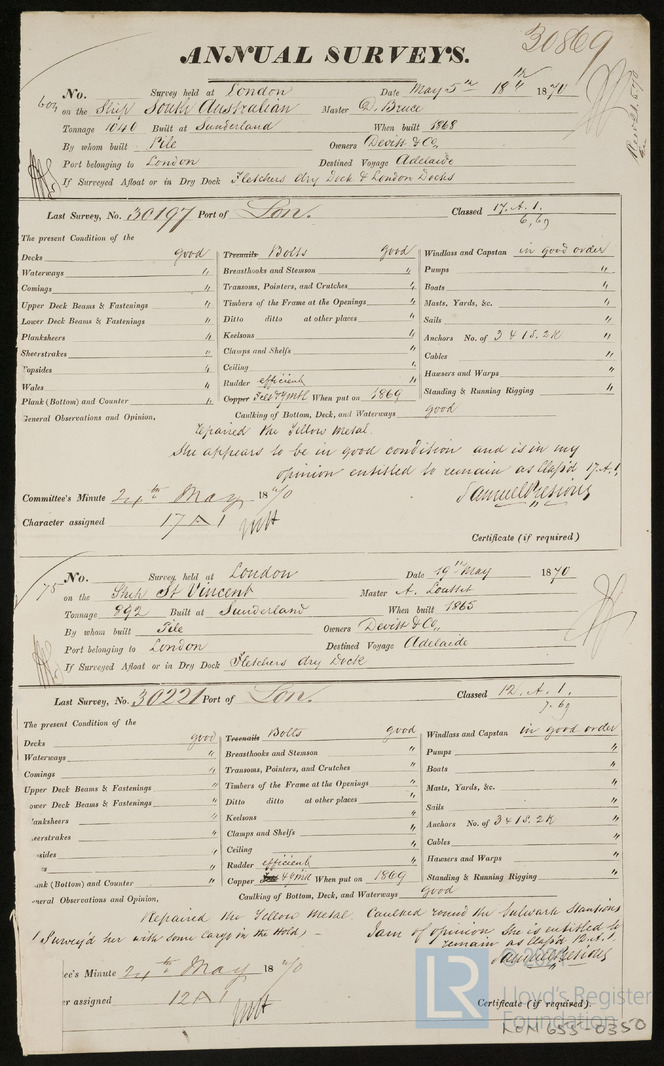 30869
ANNUAL SURVEYS.
No. Survey held at London Date May 5th 18th 1870
603 on the Ship South Australian Master D. Bruce
Tonnage 1040 Built at Sunderland When built 1868
By whom built Pile Owners Devitt & Co,
Port belonging to London Destined Voyage Adelaide
If Surveyed Afloat or in Dry Dock Fletchers dry Dock & London Docks
Last Survey, No. 30197 Port of Lon. Classed 17. A. 1.
6,69
The present Condition of the
Decks good
Waterways "
Comings "
Upper Deck Beams & Fastenings "
Lower Deck Beams & Fastenings "
Planksheers "
Sheerstrakes "
Topsides "
Wales "
Plank (Bottom) and Counter "
Treenails Bolts good
Breasthooks and Stemson "
Transoms, Pointers, and Crutches "
Timbers of the Frame at the Openings "
Ditto ditto at other places "
Keelsons "
Clamps and Shelfs "
Ceiling "
Rudder efficient "
Copper Felt & YMtl When put on 1869
Caulking of Bottom, Deck, and Waterways good
Windlass and Capstan in good order
Pumps "
Boats "
Masts, Yards, &c. "
Sails "
Anchors No. of 3 & 1 S. 2 K "
Cables "
Hawsers and Warps "
Standing & Running Rigging "
General Observations and Opinion,
repaired the Yellow Metal.
She appears to be in good condition and is in my
opinion entitled to remain as Class'd 17. A. 1.
Samuel Presious
Committee's Minute 24th May 1870
Character assigned 17 A 1
Certificate (if required)
75 No. Survey held at London Date 19th May 1870
on the Ship St Vincent Master A. Louttit
Tonnage 892 Built at Sunderland When built 1865
By whom built Pile Owners Devitt & Co,
Port belonging to London Destined Voyage Adelaide
If Surveyed Afloat or in Dry Dock Fletchers dry Dock
Last Survey, No. 30221 Port of Lon. Classed 12. A. 1.
7.69
The present Condition of the
Decks good
Waterways "
Comings "
Upper Deck Beams & Fastenings "
ower Deck Beams & Fastenings "
anksheers "
eerstrakes "
sides "
s "
ank (Bottom) and Counter "
Treenails Bolts good
Breasthooks and Stemson "
Transoms, Pointers, and Crutches "
Timbers of the Frame at the Openings "
Ditto ditto at other places "
Keelsons "
Clamps and Shelfs "
Ceiling "
Rudder efficient "
Copper & YMtl When put on 1869
Caulking of Bottom, Deck, and Waterways good
Windlass and Capstan in good order
Pumps "
Boats "
Masts, Yards, &c. "
Sails "
Anchors No. of 3 & 1 S. 2 K "
Cables "
Hawsers and Warps "
Standing & Running Rigging "
neral Observations and Opinion,
Repaired the Yellow Metal. Caulked round the bulwark Stantions
(Survey'd her with some Cargo in the Hold) — I am of opinion She is entitled to
remain as Class'd 12. A. 1.
Samuel Presious
ee's Minute 24th May 1870
er assigned 12 A 1
Certificate (if required).
LR
Lloyd's Register
Foundation
LON 655-0350